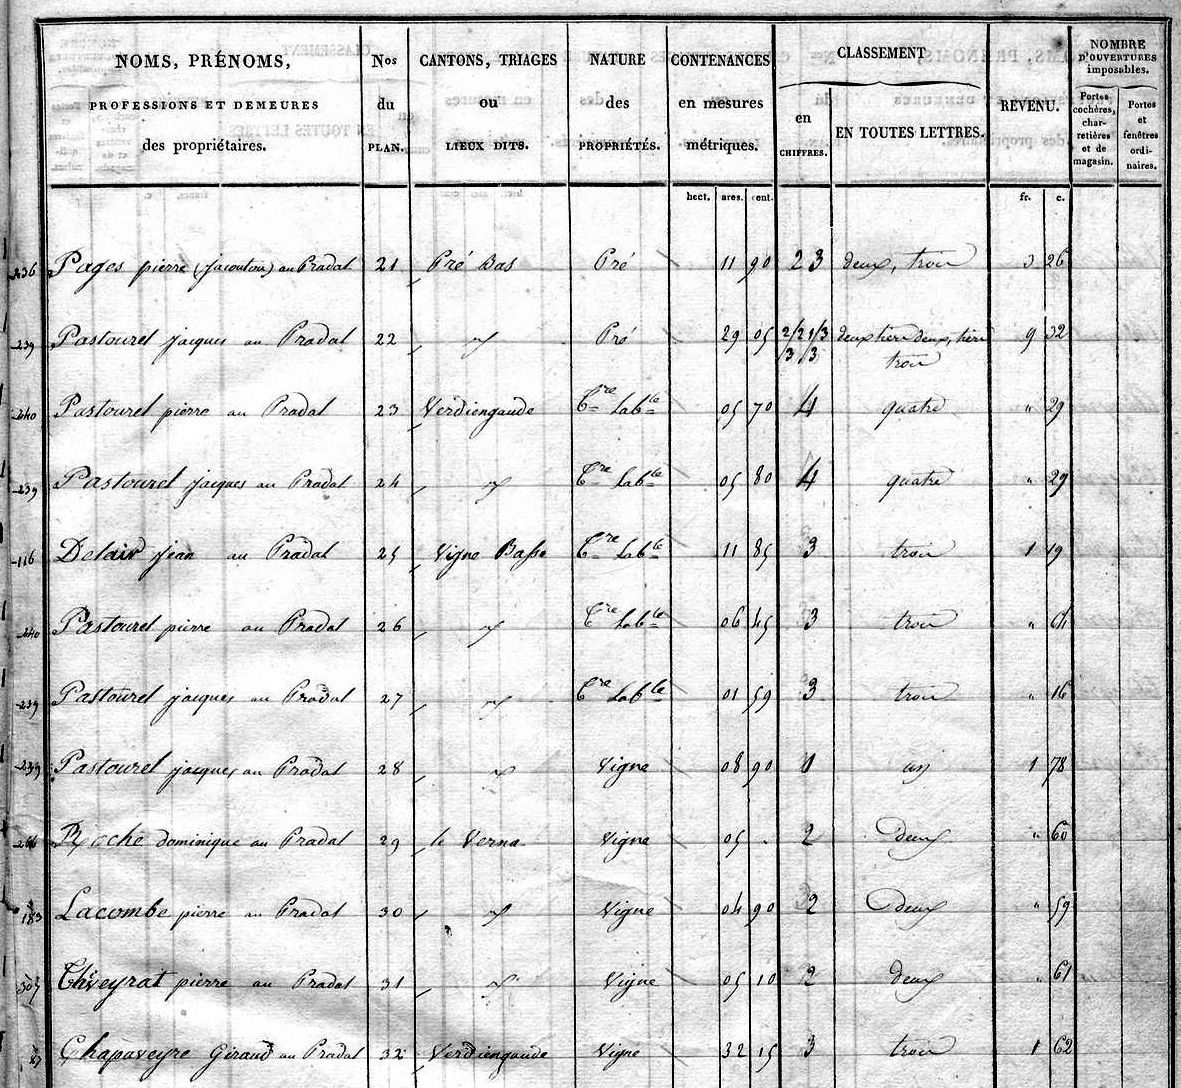 NOMS, PRÉNOMS, PROFESSIONS ET DEMEURES des propriétaires. | Nos du PLAN. | CANTONS, TRIAGES ou LIEUX DITS. | NATURE des PROPRIÉTÉS. | CONTENANCES en mesures métriques. | CLASSEMENT en CHIFFRES. | EN TOUTES LETTRES. | REVENU. | NOMBRE D'OUVERTURES imposables. | Portes cochères, charretières et de magasin. | Portes et fenêtres ordinaires.
hect. ares. cent. fr. c.
236 Pages pierre (jacoutou) au Pradat 21 Pré Bas Pré 11 90 2 3 deux, trois 3 26
239 Pastourel jacques au Pradat 22 〃 Pré 29 05 2/3 2 1/3 3 deux tiers deux, tiers trois 9 32
240 Pastourel pierre au Pradat 23 Verdiengaude Tre lable 05 70 4 quatre " 29
239 Pastourel jacques au Pradat 24 〃 Tre lable 05 80 4 quatre " 29
116 Delair jean au Pradat 25 Vigne Basse Tre lable 11 85 3 trois 1 19
240 Pastourel pierre au Pradat 26 〃 Tre lable 06 45 3 trois " 64
239 Pastourel jacques au Pradat 27 〃 Tre lable 01 59 3 trois " 16
239 Pastourel jacques au Pradat 28 〃 Vigne 08 90 1 un 1 78
Roche dominique au Pradat 29 le Verna Vigne 05 . 2 Deux " 60
183 Lacombe pierre au Pradat 30 〃 Vigne 04 90 2 Deux " 59
305 Theveyrat pierre au Pradat 31 〃 Vigne 05 10 2 deux " 61
87 Chapaveyre Giraud au Pradat 32 Verdiengaude Vigne 32 15 3 trois 1 62